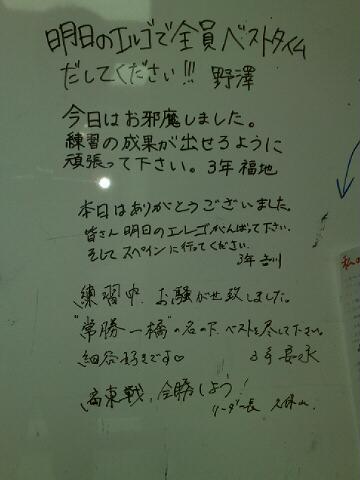 明日のエルゴで全員ベストタイム
だしてください!!! 野澤
今日はお邪魔しました。
練習の成果が出せるように
頑張って下さい。3年 福地
本日はありがとうございました。
皆さん明日のエルゴがんばって下さい。
そして スペインに行ってください。
3年
練習中、お騒がせ致しました。
"常勝一橋"の名の下、ベストを尽して下さい。
細谷好きです♡ 3年
商東戦、全勝しよう!
リーダー長
私の